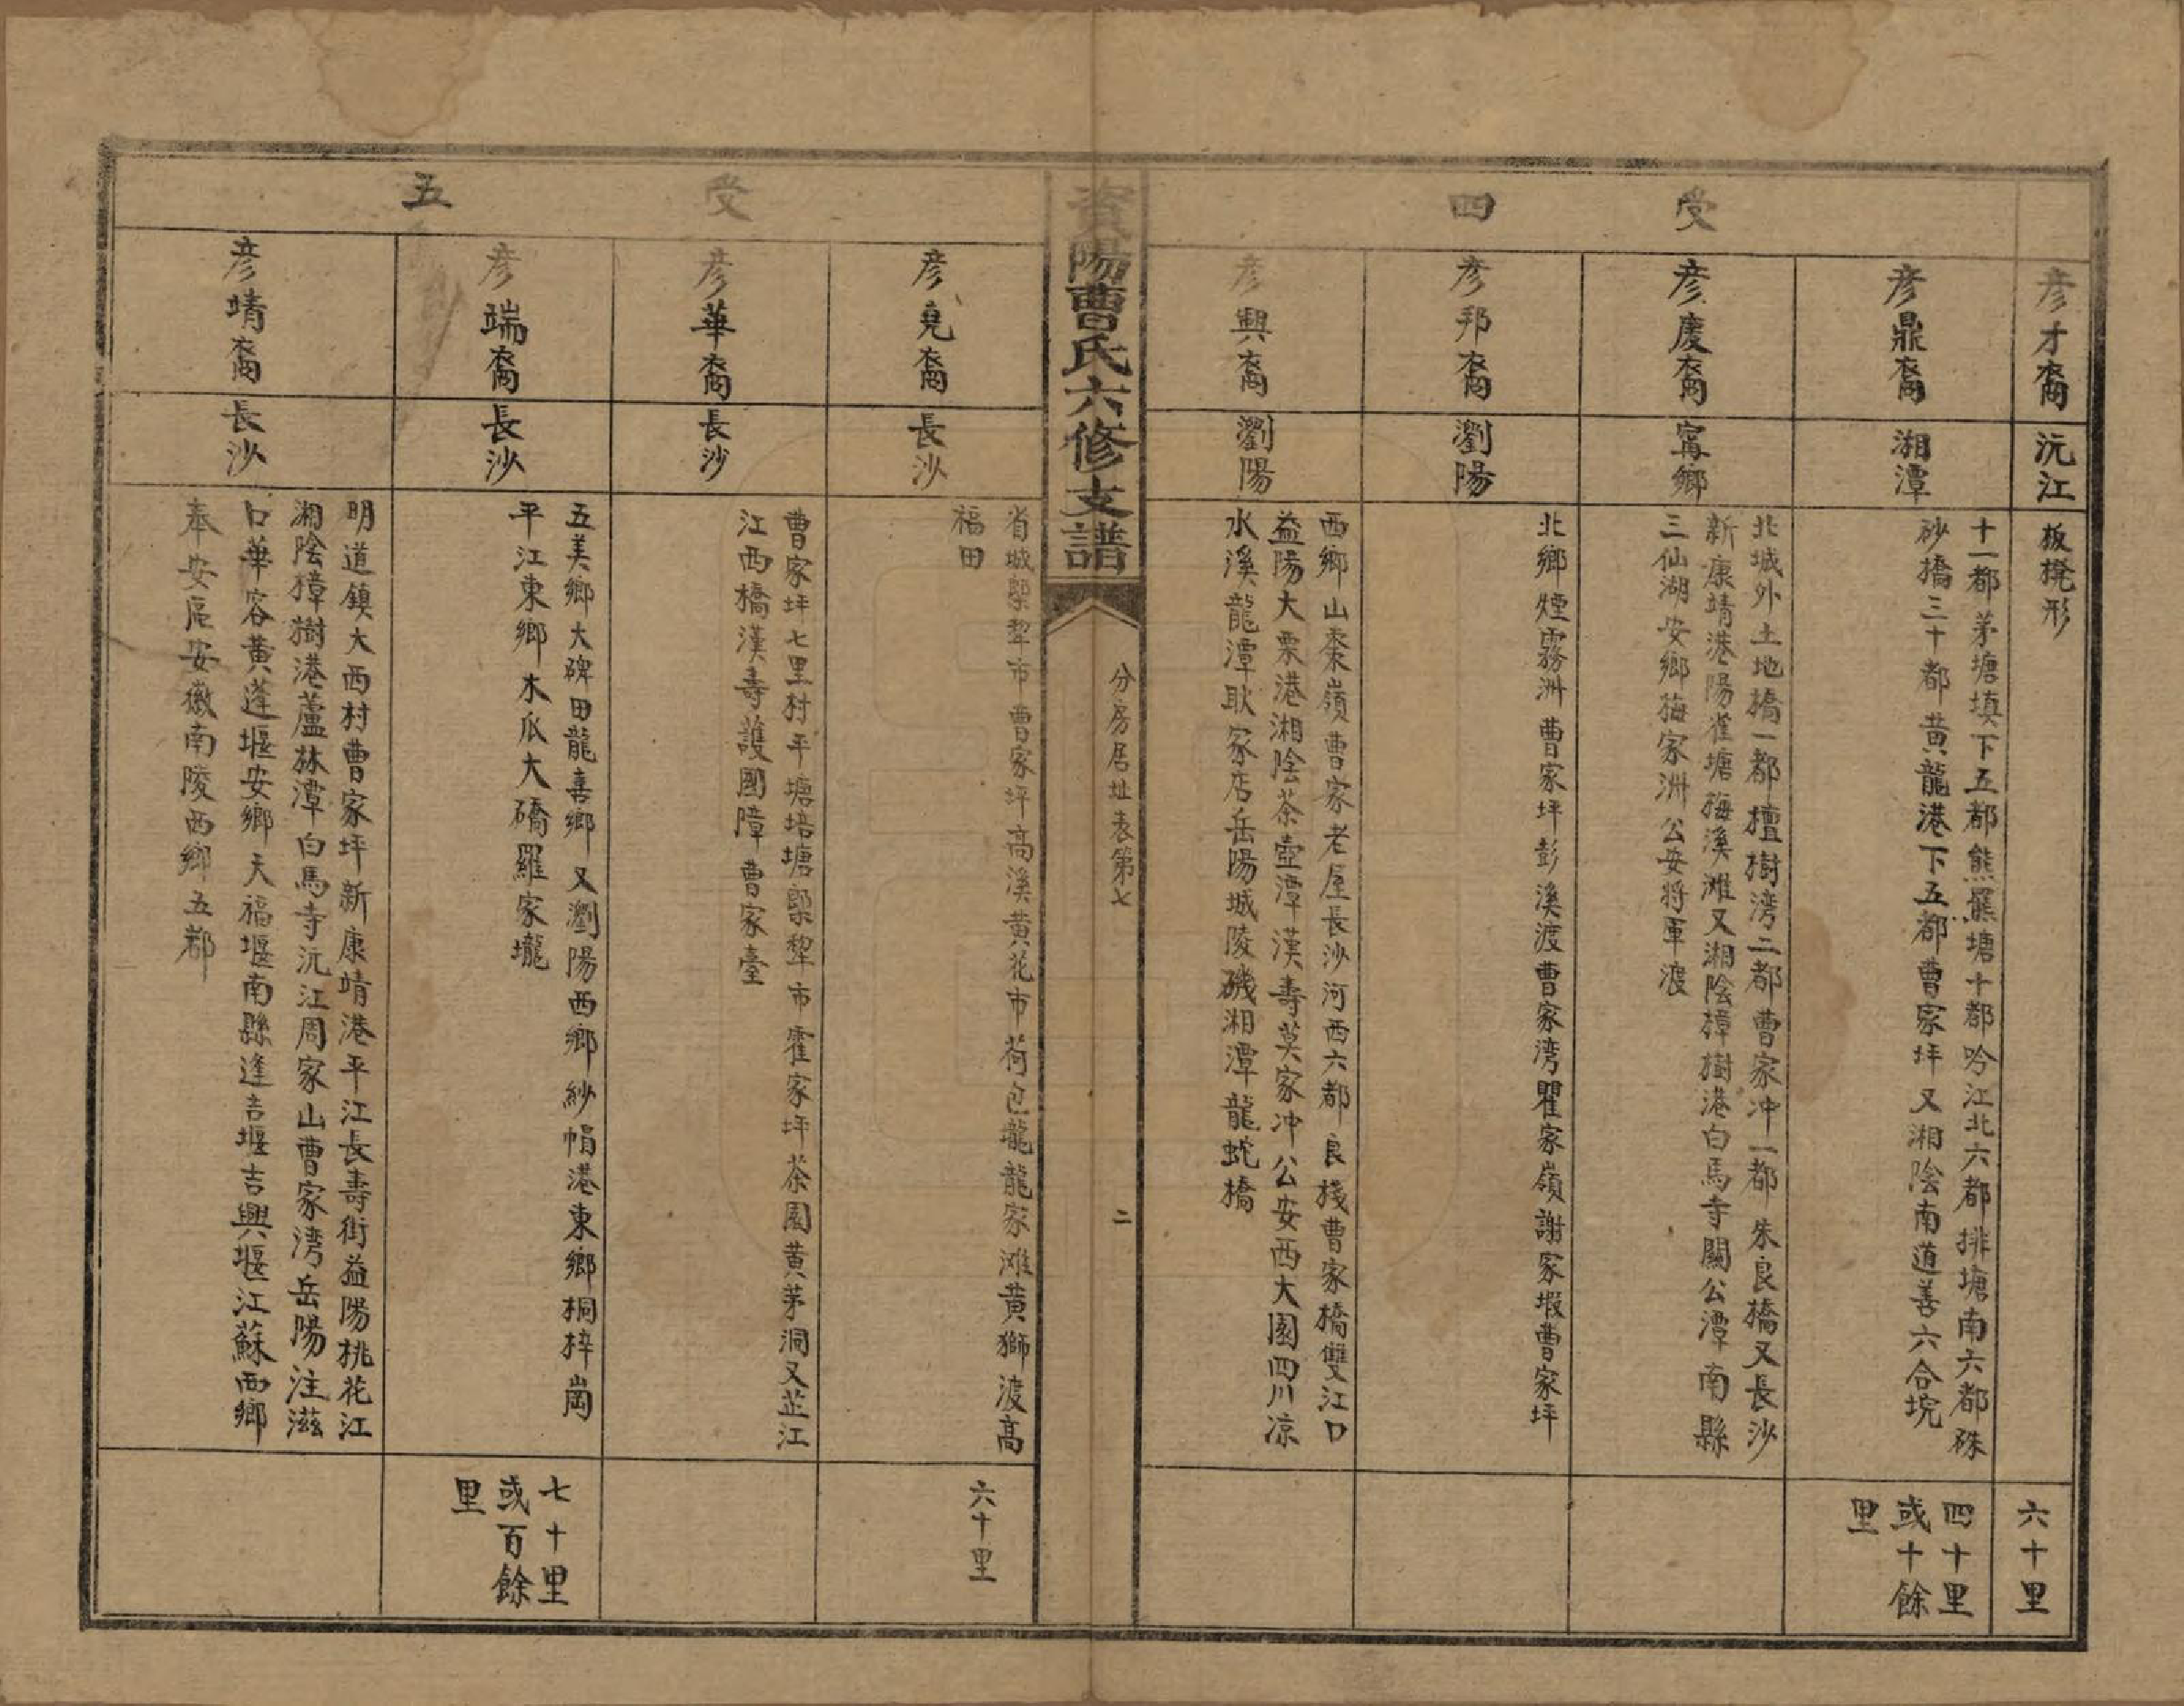 彦才裔
沅江
板櫈形
六十里
受四
彦鼎裔
湘潭
十一都茅塘填下五都熊羆塘十都吟江北六都排塘南六都硃
砂橋三十都黄龍港下五都曹家坪又湘陰南道善六合垸
四十里
或十餘
里
彦慶裔
甯鄉
北城外土地橋一都檀樹湾二都曹家冲一都朱良橋又長沙
新康靖港陽雀塘梅溪滩又湘陰樟樹港白馬寺關公潭南縣
三仙湖安鄉梅家洲公安將軍渡
彦邦裔
瀏陽
北鄉煙霧洲曹家坪彭溪渡曹家湾瞿家嶺謝家塅曹家坪
彦興裔
瀏陽
西鄉山棗嶺曹家老屋長沙河西六都良棧曹家橋雙江口
益陽大栗港湘陰茶壺潭漢壽莫家冲公安西大園四川凉
水溪龍潭耿家店岳陽城陵磯湘潭龍蛇橋
資陽曹氏六修支譜
分房居址表第七
二
受五
彦堯裔
長沙
省城㮚犂市曹家坪高溪黄花市荷包塘龍家滩黄獅渡高
福田
六十里
彦華裔
長沙
曹家坪七里村平塘培塘㮚犂市霍家坪茶園黄茅洞又芷江
江西橋漢壽護國障曹家臺
彦端裔
長沙
五美鄉大碑田龍喜鄉又瀏陽西鄉紗帽港東鄉桐梓崗
平江東鄉木瓜大礄羅家壠
七十里
或百餘
里
彦靖裔
長沙
明道鎮大西村曹家坪新康靖港平江長壽街益陽桃花江
湘陰樟樹港蘆林潭白馬寺沅江周家山曹家湾岳陽注滋
口華容黄蓬堰安鄉天福堰南縣逢吉堰吉興堰江蘇西鄉
奉安區安徽南陵西鄉五都